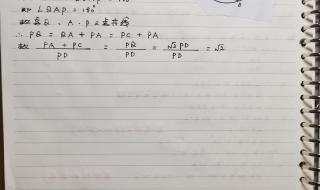 故 ∠QAP = 180°
故 点 Q、A、P 三点共线
∴ PQ = QA + PA = PC + PA
故 (PA + PC)/PD = PQ/PD = √2PD/PD = √2